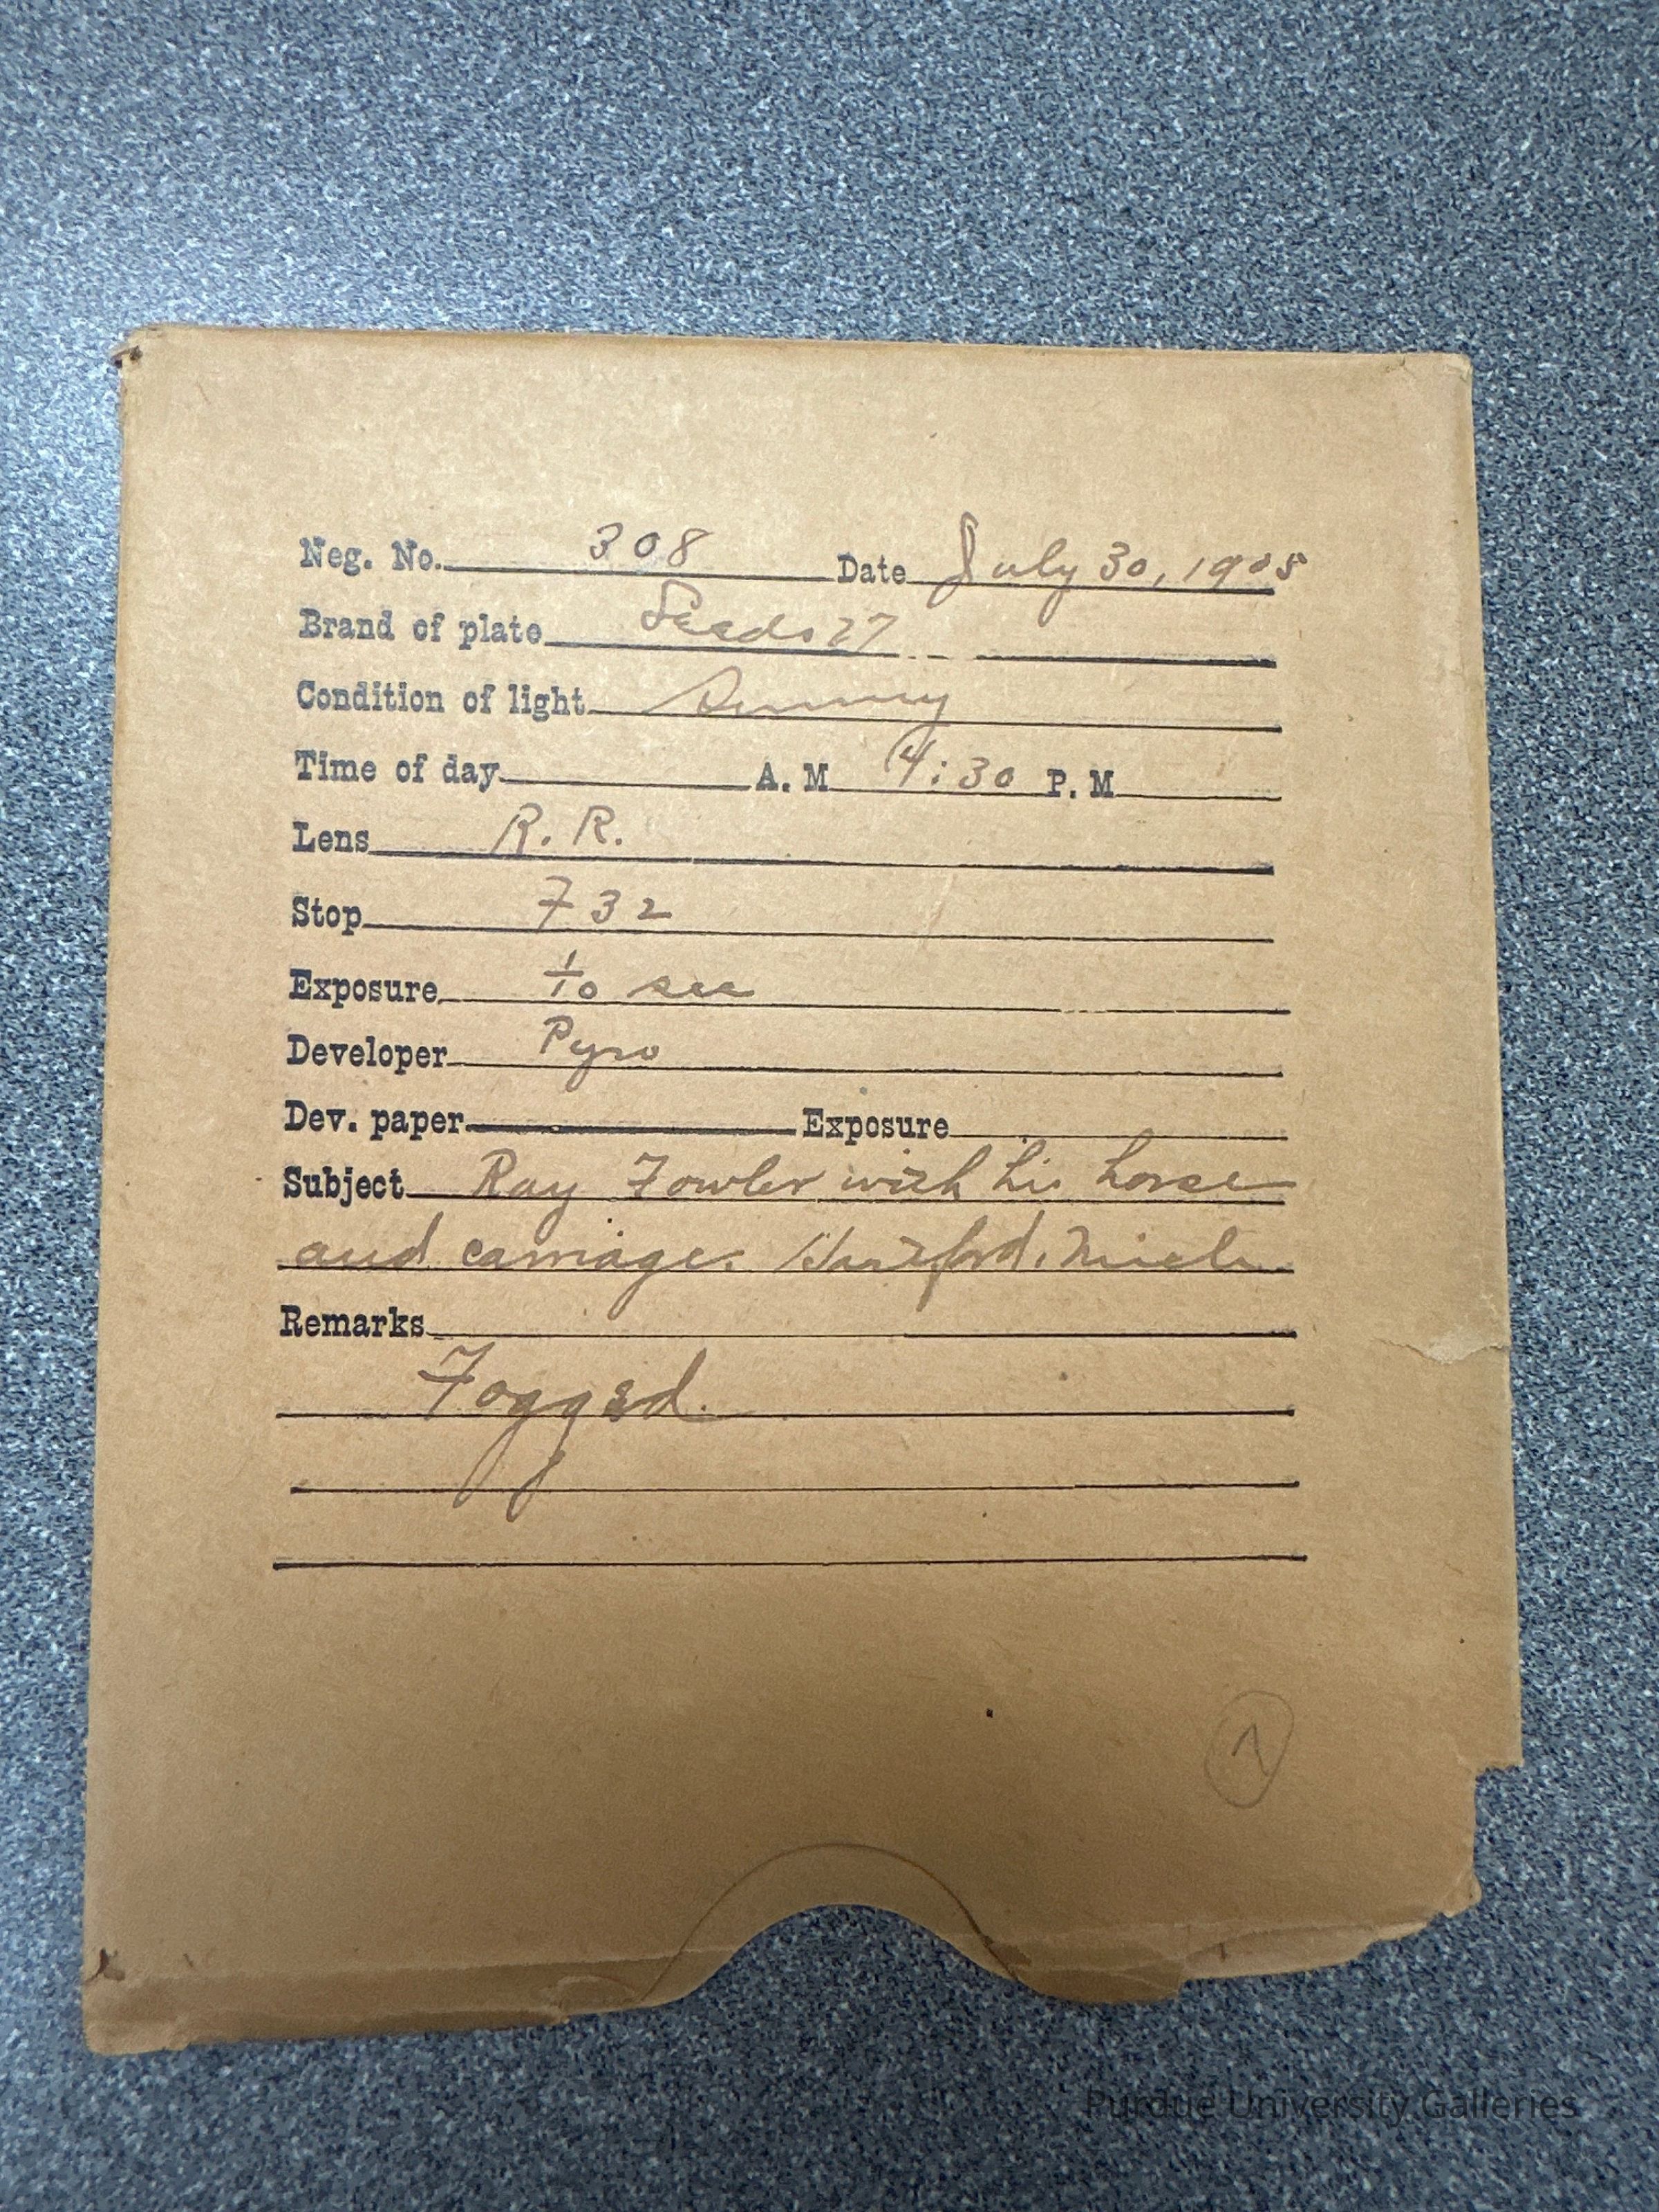 Neg. No. 308 Date July 30, 1905
Brand of plate Seeds 27
Condition of light Sunny
Time of day A. M 4:30 P. M
Lens R. R.
Stop F 32
Exposure 1/10 sec
Developer Pyro
Dev. paper Exposure
Subject Ray Fowler with his horse
and carriage. Hartford, Mich.
Remarks
Fogged.
Purdue University Galleries